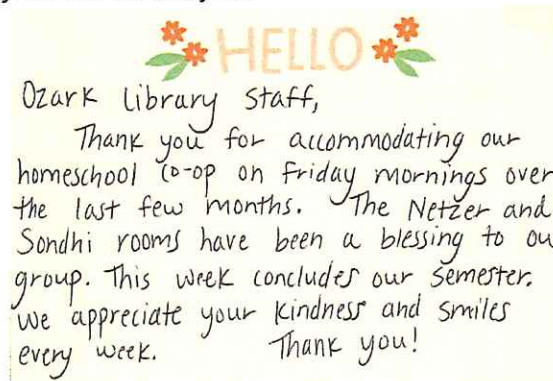 HELLO
Ozark Library Staff,
Thank you for accommodating our
homeschool co-op on Friday mornings over
the last few months. The Netzer and
Sondhi rooms have been a blessing to ou
group. This week concludes our semester.
we appreciate your kindness and smiles
every week. Thank you!